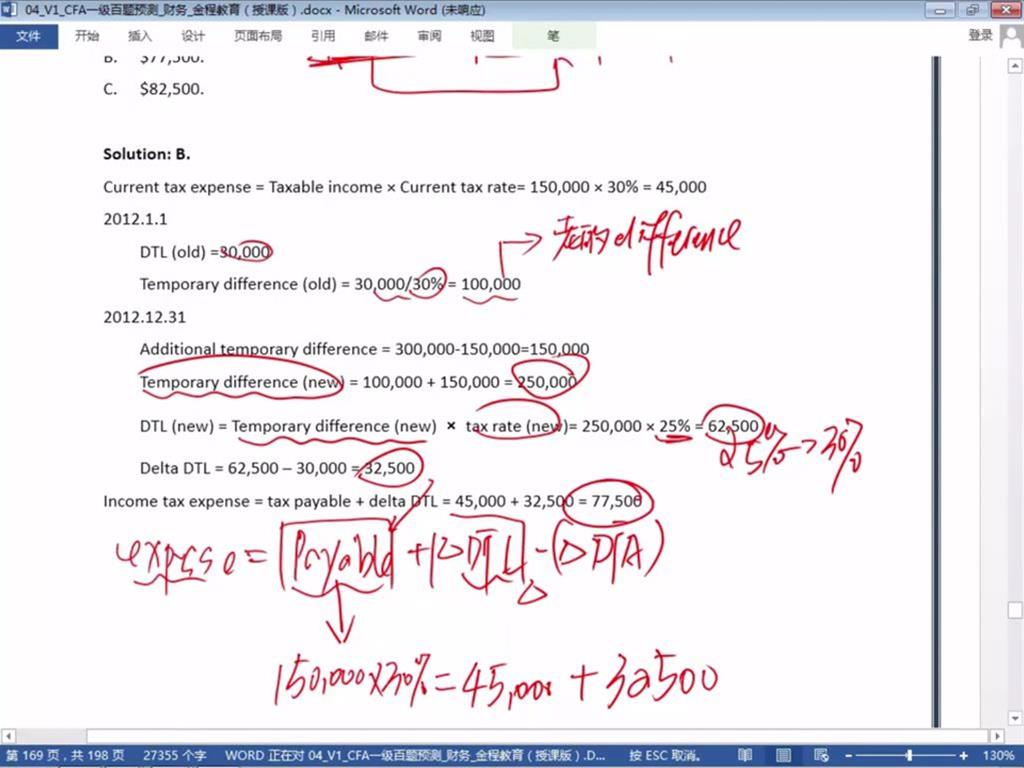 04_V1_CFA一级百题预测_财务_金程教育（授课版）.docx - Microsoft Word (未响应)
文件 开始 插入 设计 页面布局 引用 邮件 审阅 视图 笔 登录
B. $77,500.
C. $82,500.
Solution: B.
Current tax expense = Taxable income × Current tax rate= 150,000 × 30% = 45,000
2012.1.1
DTL (old) =30,000
老的difference
Temporary difference (old) = 30,000/30% = 100,000
2012.12.31
Additional temporary difference = 300,000-150,000=150,000
Temporary difference (new) = 100,000 + 150,000 = 250,000
DTL (new) = Temporary difference (new) × tax rate (new)= 250,000 × 25% = 62,500
25%->30%
Delta DTL = 62,500 – 30,000 = 32,500
Income tax expense = tax payable + delta DTL = 45,000 + 32,500 = 77,500
expense = Payable + (△DTL - (△DTA)
150,000x30%=45,000 + 32500
第 169 页，共 198 页 27355 个字 WORD 正在对 04_V1_CFA一级百题预测_财务_金程教育（授课版）.D... 按 ESC 取消。 130%